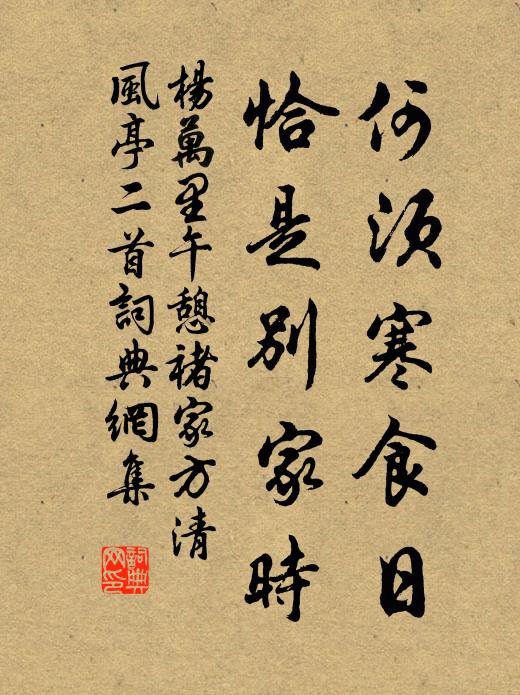 何須寒食日
恰是別家時
楊萬里午憩褚家方清
風亭二首詞典網集
詞典
网印